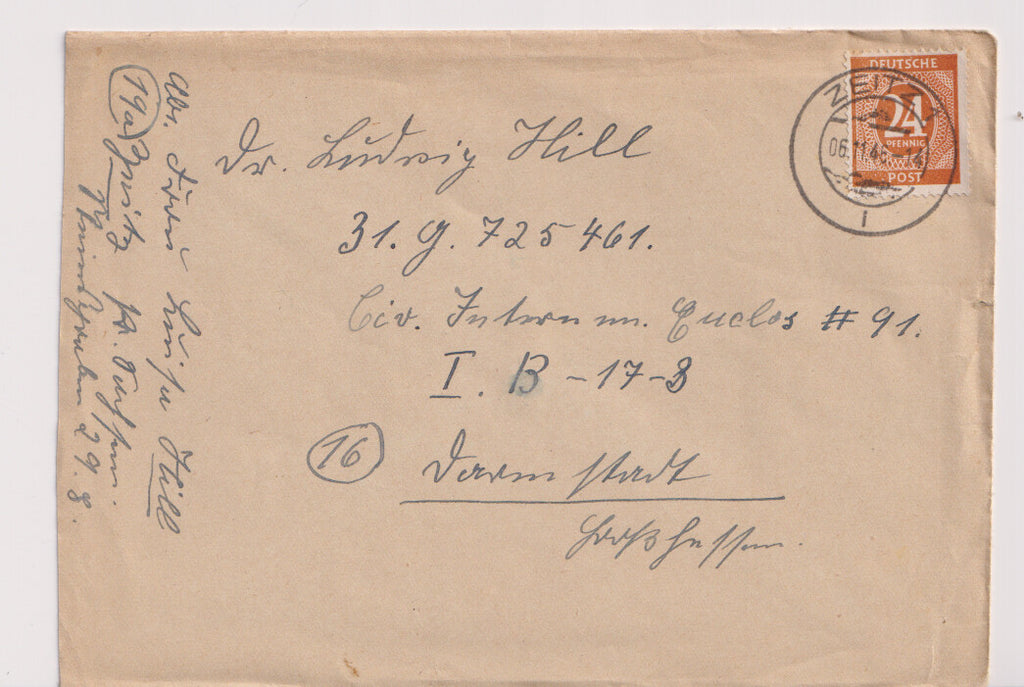 DEUTSCHE
24
PFENNIG
POST
ZEITZ 1
06.
Dr. Ludwig Hill
31. G. 725 461.
Civ. Internm. Enclos # 91.
I. B - 17 - 3
16
Darmstadt
Großhessen.
Abs. Frau Luise Hill
19a Zeitz
29.